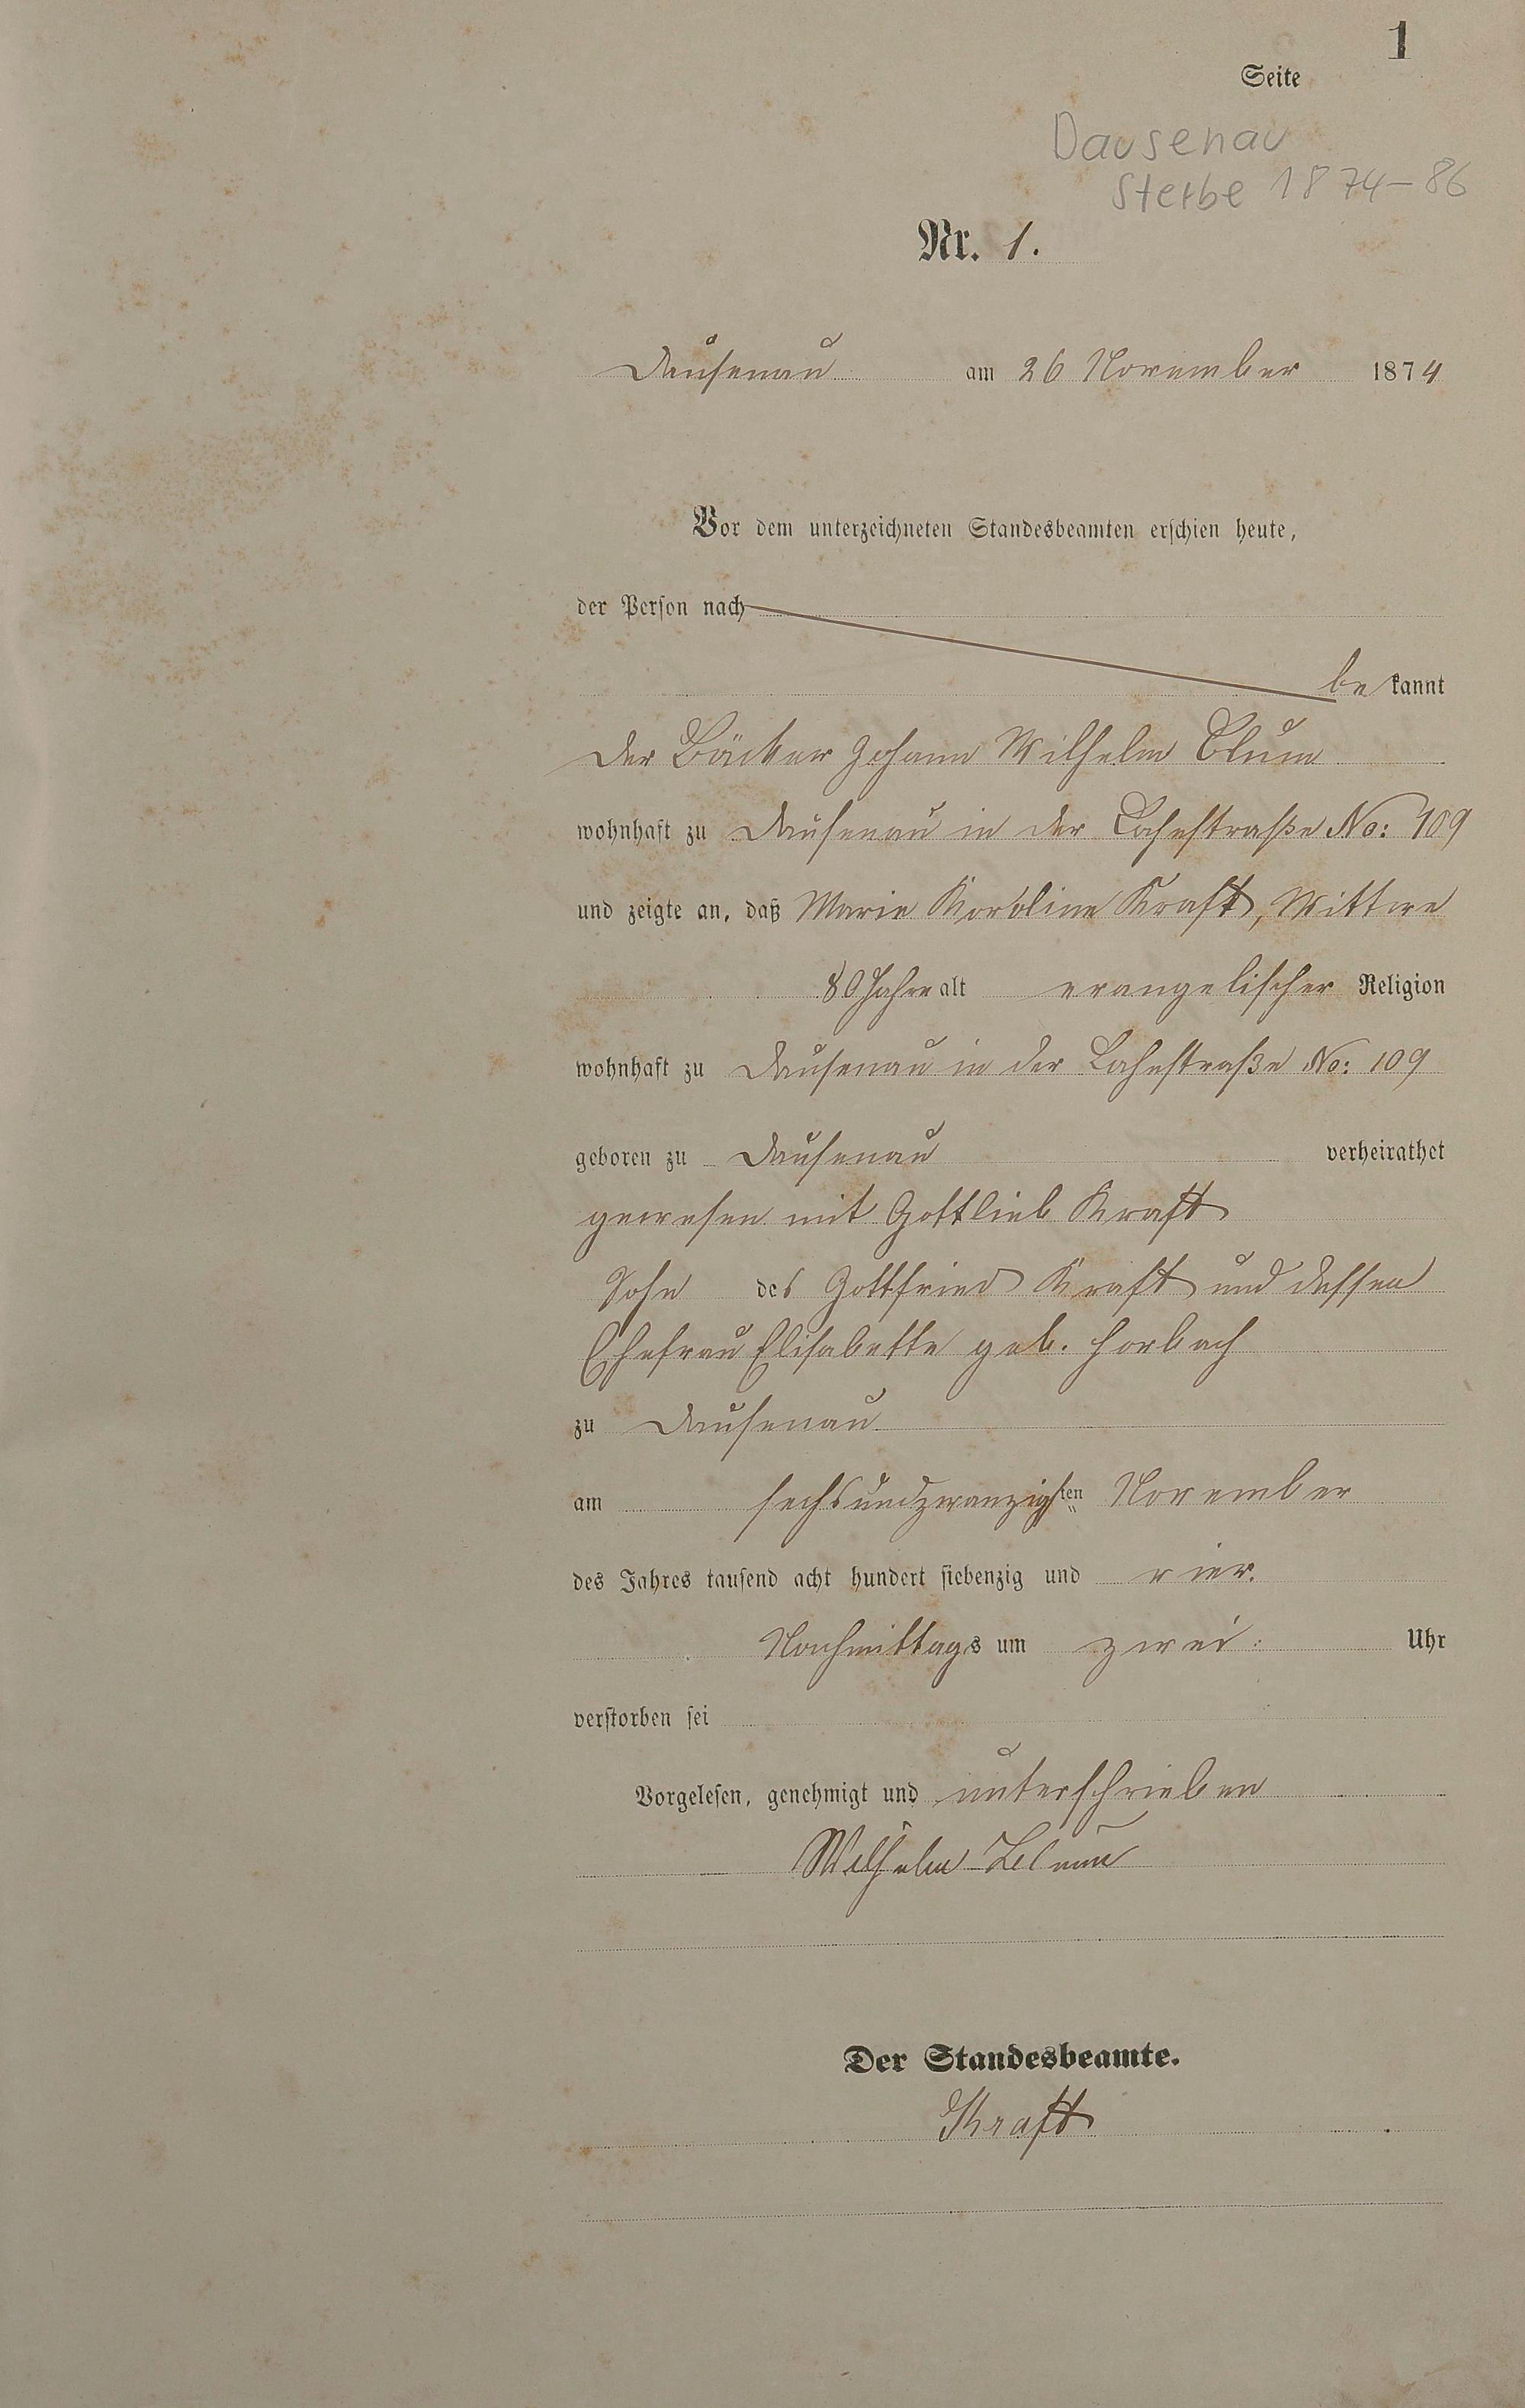 1
Seite
Dausenau
Sterbe 1874-86
Nr. 1.
Dausenau am 26 November 1874
Vor dem unterzeichneten Standesbeamten erschien heute,
der Person nach
bekannt
der Bäcker Johann Wilhelm Blum
wohnhaft zu Dausenau in der Lahnstraße No: 109
und zeigte an, daß Marie Karoline Kraft, Wittwe
80 Jahre alt evangelischer Religion
wohnhaft zu Dausenau in der Lahnstraße No: 109
geboren zu Dausenau verheirathet
gewesen mit Gottlieb Kraft
Sohn des Gottfried Kraft und dessen
Ehefrau Elisabetta geb. Horbach
zu Dausenau
am sechsundzwanzigsten November
des Jahres tausend acht hundert siebenzig und vier.
Nachmittags um zwei Uhr
verstorben sei
Vorgelesen, genehmigt und unterschrieben
Wilhelm Blum
Der Standesbeamte.
Kraft